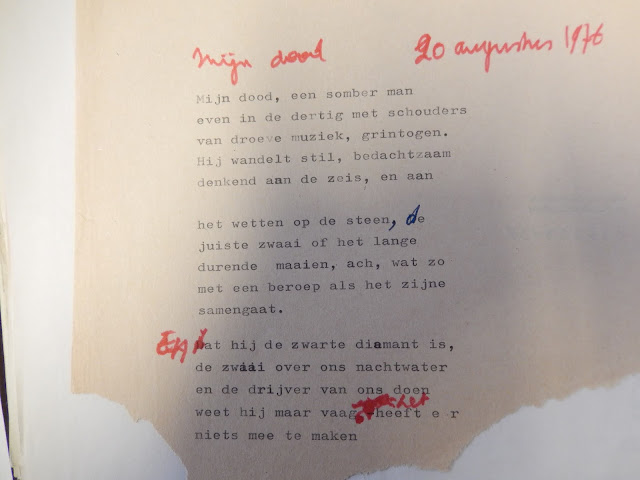 Mijn dood 20 augustus 1976
Mijn dood, een somber man
even in de dertig met schouders
van droeve muziek, grintogen.
Hij wandelt stil, bedachtzaam
denkend aan de zeis, en aan
het wetten op de steen, de
juiste zwaai of het lange
durende maaien, ach, wat zo
met een beroep als het zijne
samengaat.
dat hij de zwarte diamant is,
de zwaai over ons nachtwater
en de drijver van ons doen
weet hij maar vaag het heeft er
niets mee te maken